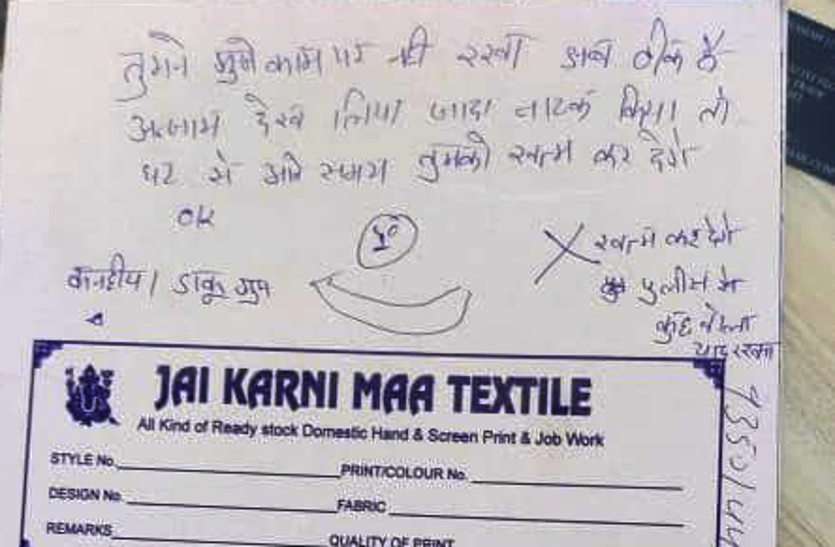 तुमने मुजे काम पर नही रखा अब ठीक है
अन्जाम देख लिया जादा नाटक किया तो
घर से आते समय तुमको खत्म कर देगे
ok
डाकू ग्रुप
खत्म कर देगे
पुलीस से
याद रखना
JAI KARNI MAA TEXTILE
All Kind of Ready stock Domestic Hand & Screen Print & Job Work
STYLE No.
PRINT/COLOUR No.
DESIGN No.
FABRIC
REMARKS
QUALITY OF PRINT